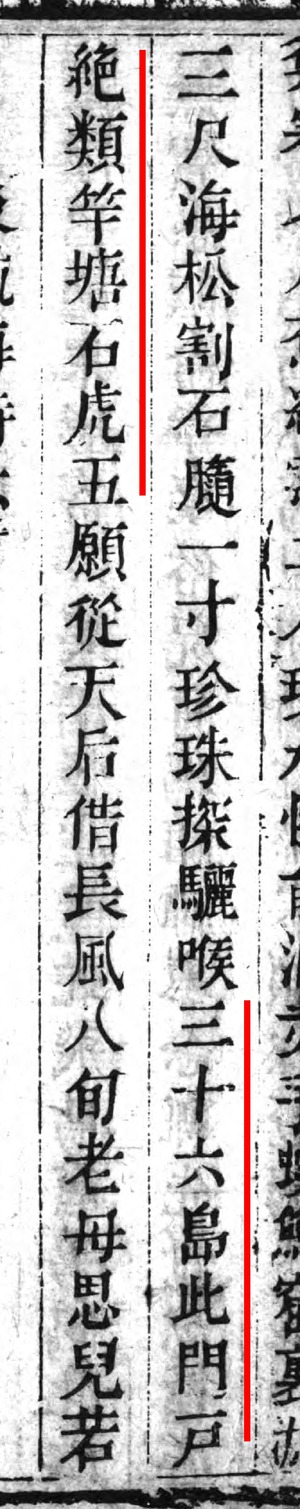 三尺海松割石隨一寸珍珠探驪喉三十六島此門戸
絶類竿塘石虎五願從天后借長風八旬老母思兒若